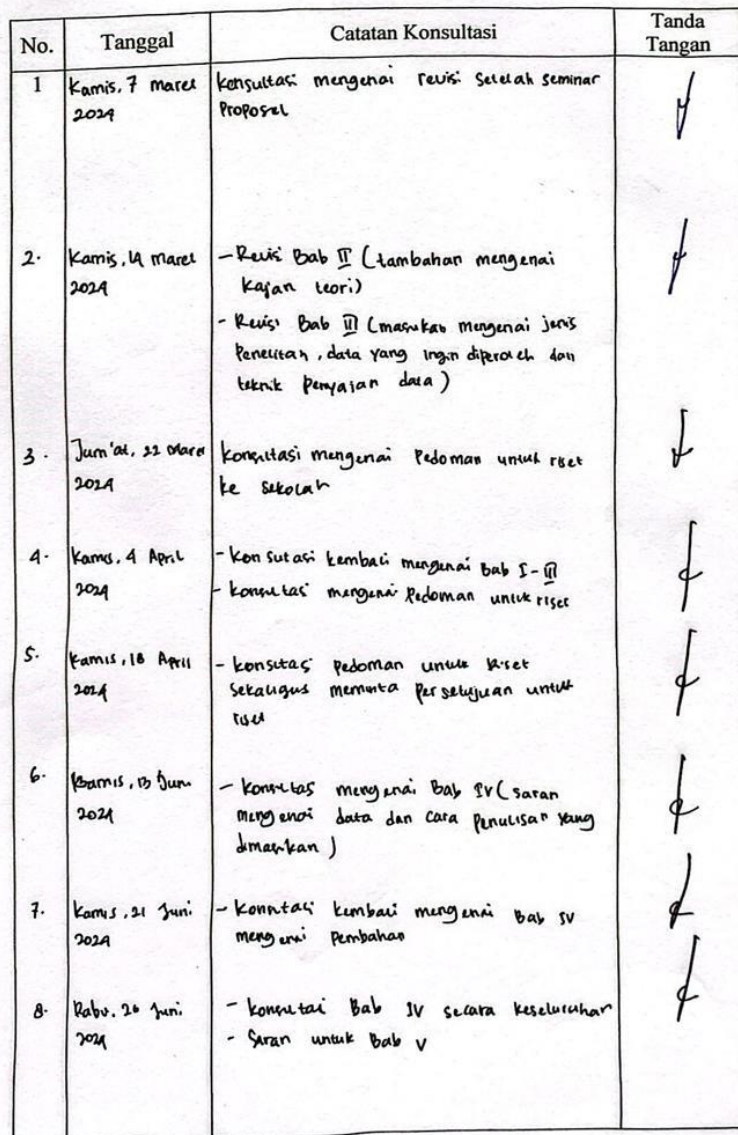 No. Tanggal Catatan Konsultasi Tanda Tangan
1 Kamis, 7 maret Konsultasi mengenai revisi setelah seminar
2024 Proposal
2. Kamis, 14 maret - Revisi Bab II (tambahan mengenai
2024 kajian teori)
- Revisi Bab III (masukan mengenai jenis
Penelitian, data yang ingin diperoleh dan
teknik penyajian data)
3. Jum'at, 22 Maret Konsultasi mengenai Pedoman untuk riset
2024 ke sekolah
4. Kamis, 4 April - Konsutasi kembali mengenai Bab I-III
2024 - Konsultasi mengenai Pedoman untuk riset
5. Kamis, 18 April - Konsultasi pedoman untuk Riset
2024 sekaligus meminta persetujuan untuk
riset
6. Kamis, 13 Juni - Konsultasi mengenai Bab IV (saran
2024 mengenai data dan cara penulisan yang
dimasukan)
7. Kamis, 21 Juni - Konsultasi kembali mengenai Bab IV
2024 mengenai Pembahan
8. Rabu, 26 Juni - Konsultasi Bab IV secara keseluruhan
2024 - Saran untuk Bab V